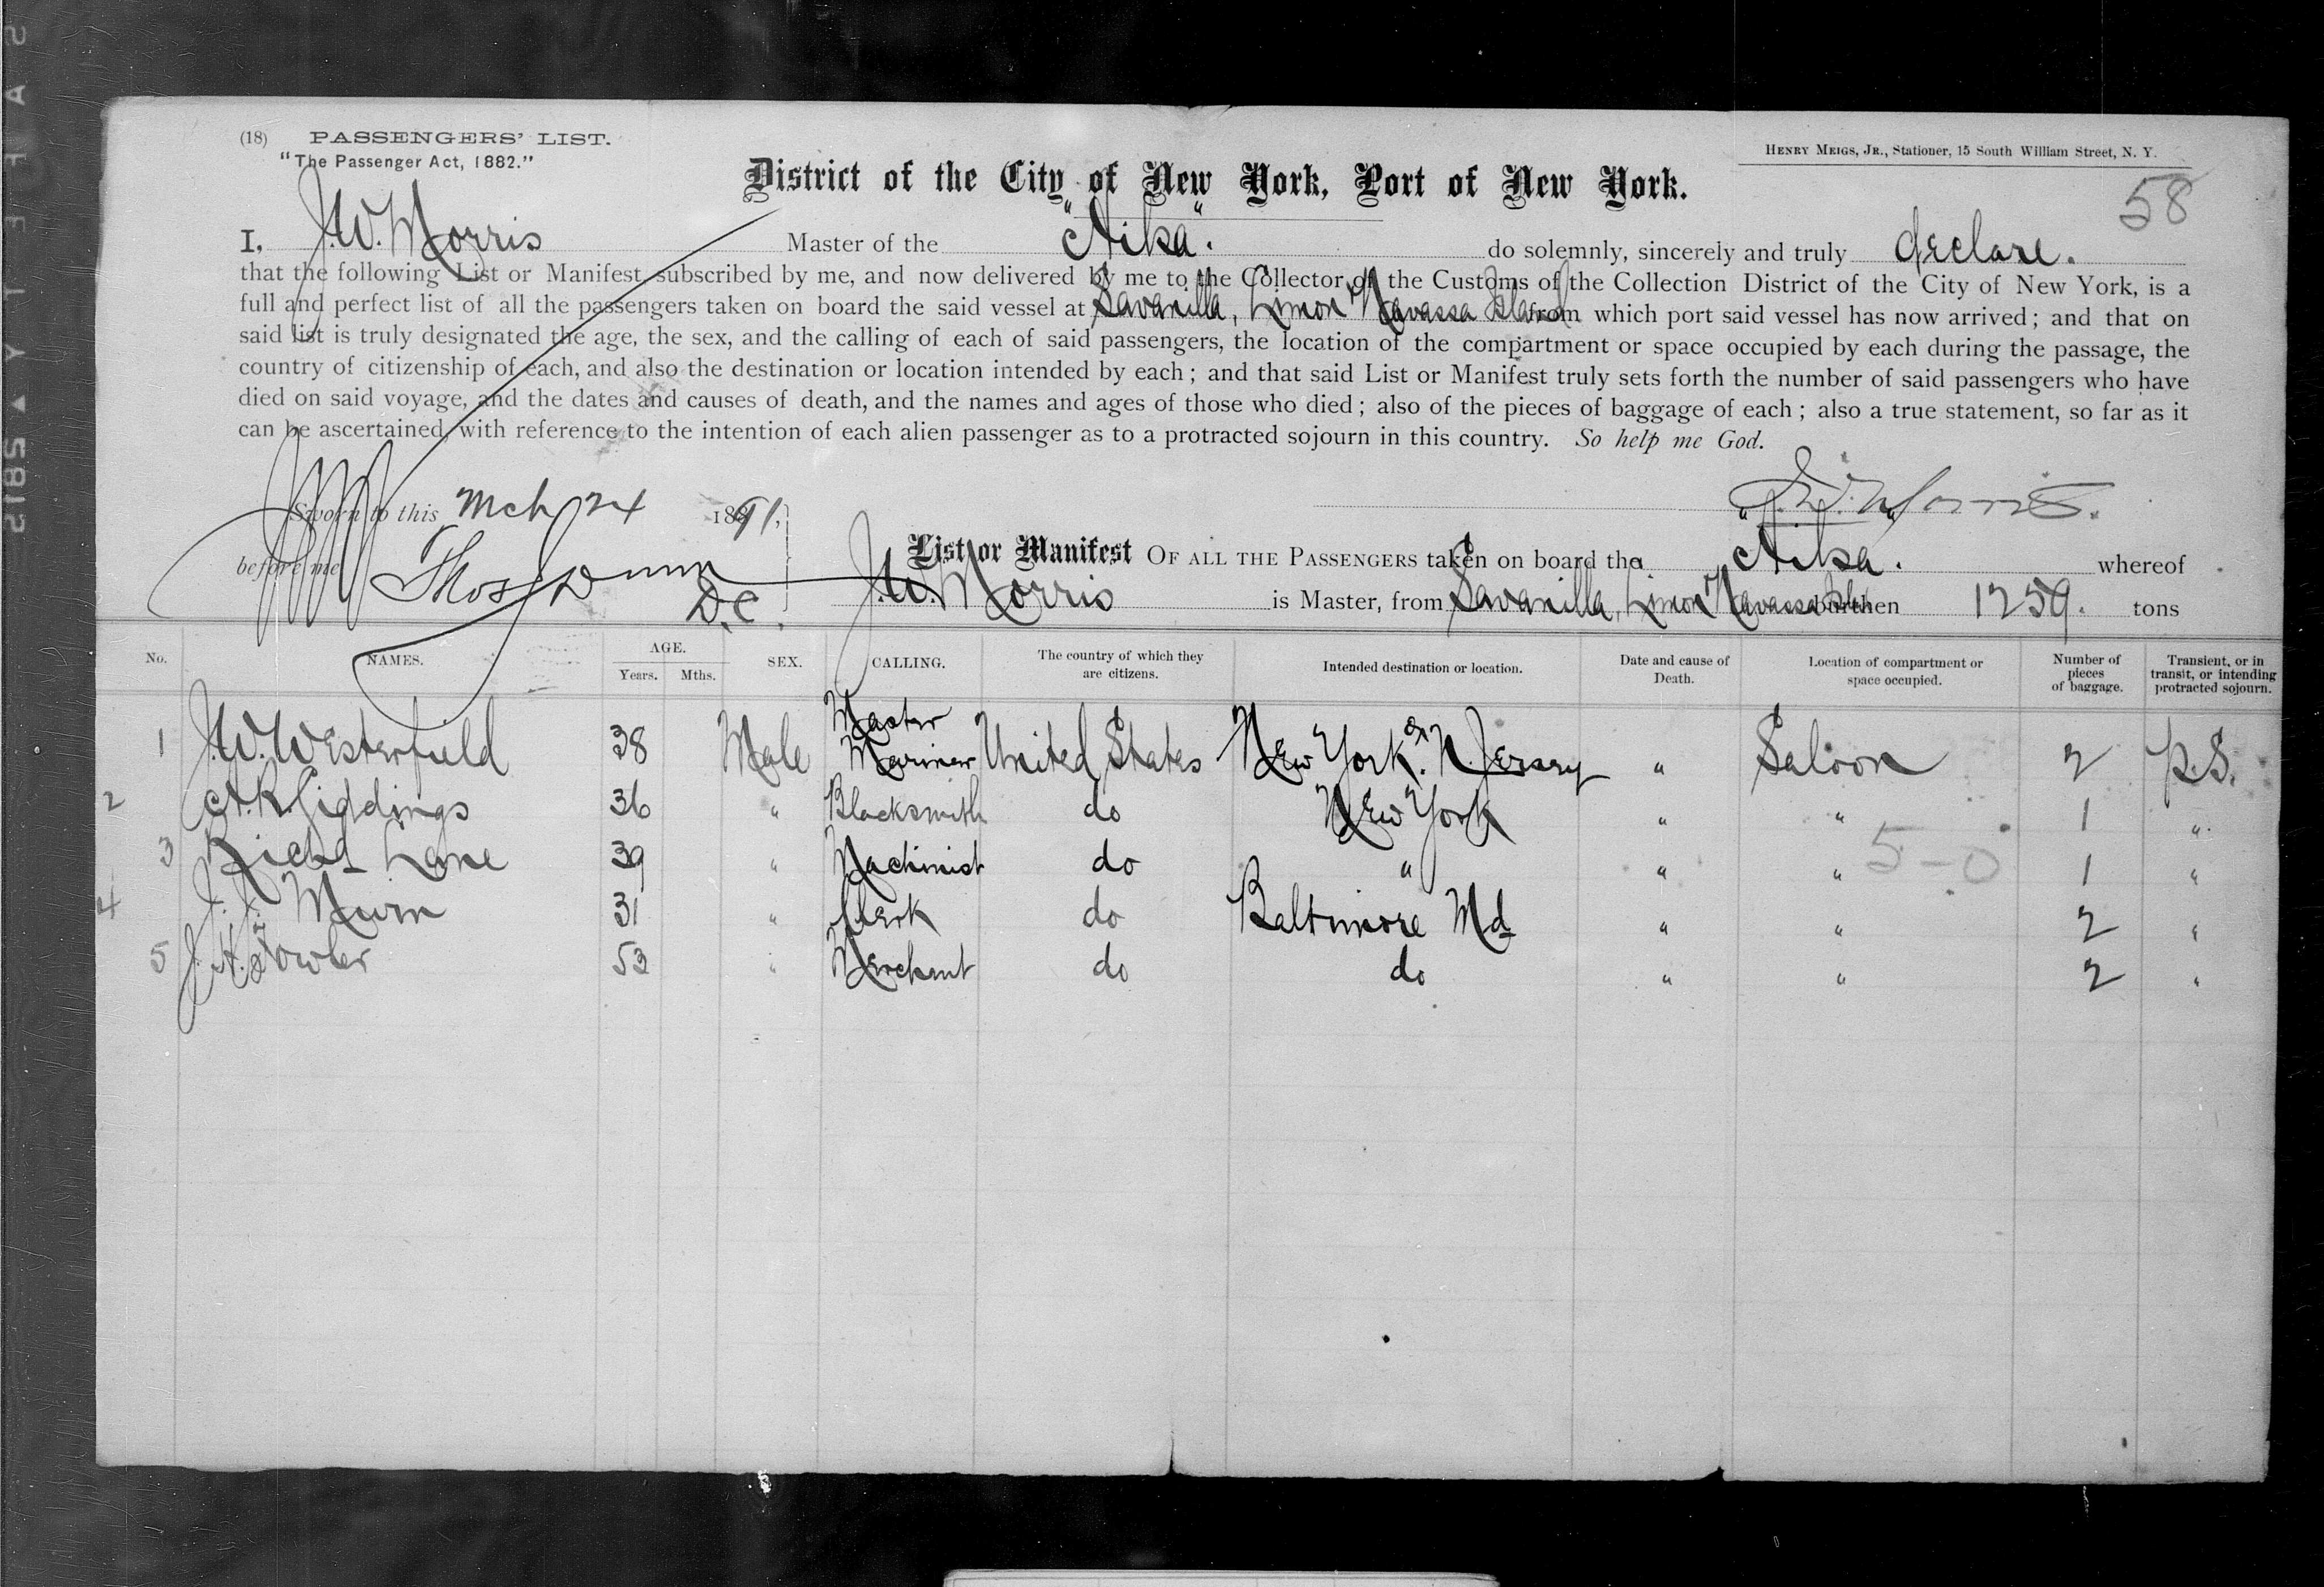 (18) PASSENGERS' LIST.
"The Passenger Act, 1882."
HENRY MEIGS, JR., Stationer, 15 South William Street, N. Y.
District of the City of New York, Port of New York.
58
I, J.W. Morris Master of the "Aika". do solemnly, sincerely and truly declare.
that the following List or Manifest subscribed by me, and now delivered by me to the Collector of the Customs of the Collection District of the City of New York, is a
full and perfect list of all the passengers taken on board the said vessel at Savanilla, Limon & Navassa Island from which port said vessel has now arrived; and that on
said list is truly designated the age, the sex, and the calling of each of said passengers, the location of the compartment or space occupied by each during the passage, the
country of citizenship of each, and also the destination or location intended by each; and that said List or Manifest truly sets forth the number of said passengers who have
died on said voyage, and the dates and causes of death, and the names and ages of those who died; also of the pieces of baggage of each; also a true statement, so far as it
can be ascertained, with reference to the intention of each alien passenger as to a protracted sojourn in this country. So help me God.
Sworn to this Mch 24 1891,
J.W. Morris.
before me Thos Dunn
D.C.
List or Manifest OF ALL THE PASSENGERS taken on board the "Aika". whereof
J.W. Morris is Master, from Savanilla, Limon & Navassa Isl. burthen 1259. tons
No. NAMES. AGE. Years. Mths. SEX. CALLING. The country of which they are citizens. Intended destination or location. Date and cause of Death. Location of compartment or space occupied. Number of pieces of baggage. Transient, or in transit, or intending protracted sojourn.
1 J.W. Westerfield 38 Male Master Mariner United States New York or N. Jersey " Saloon 2 P.S.
2 A.K. Giddings 36 " Blacksmith do New York " " 1 "
3 Richd Lane 39 " Machinist do " " " 1 "
4 J.J. Murn 31 " Clerk do Baltimore Md " " 2 "
5 J.H. Fowler 53 " Merchant do do " " 2 "
5-0